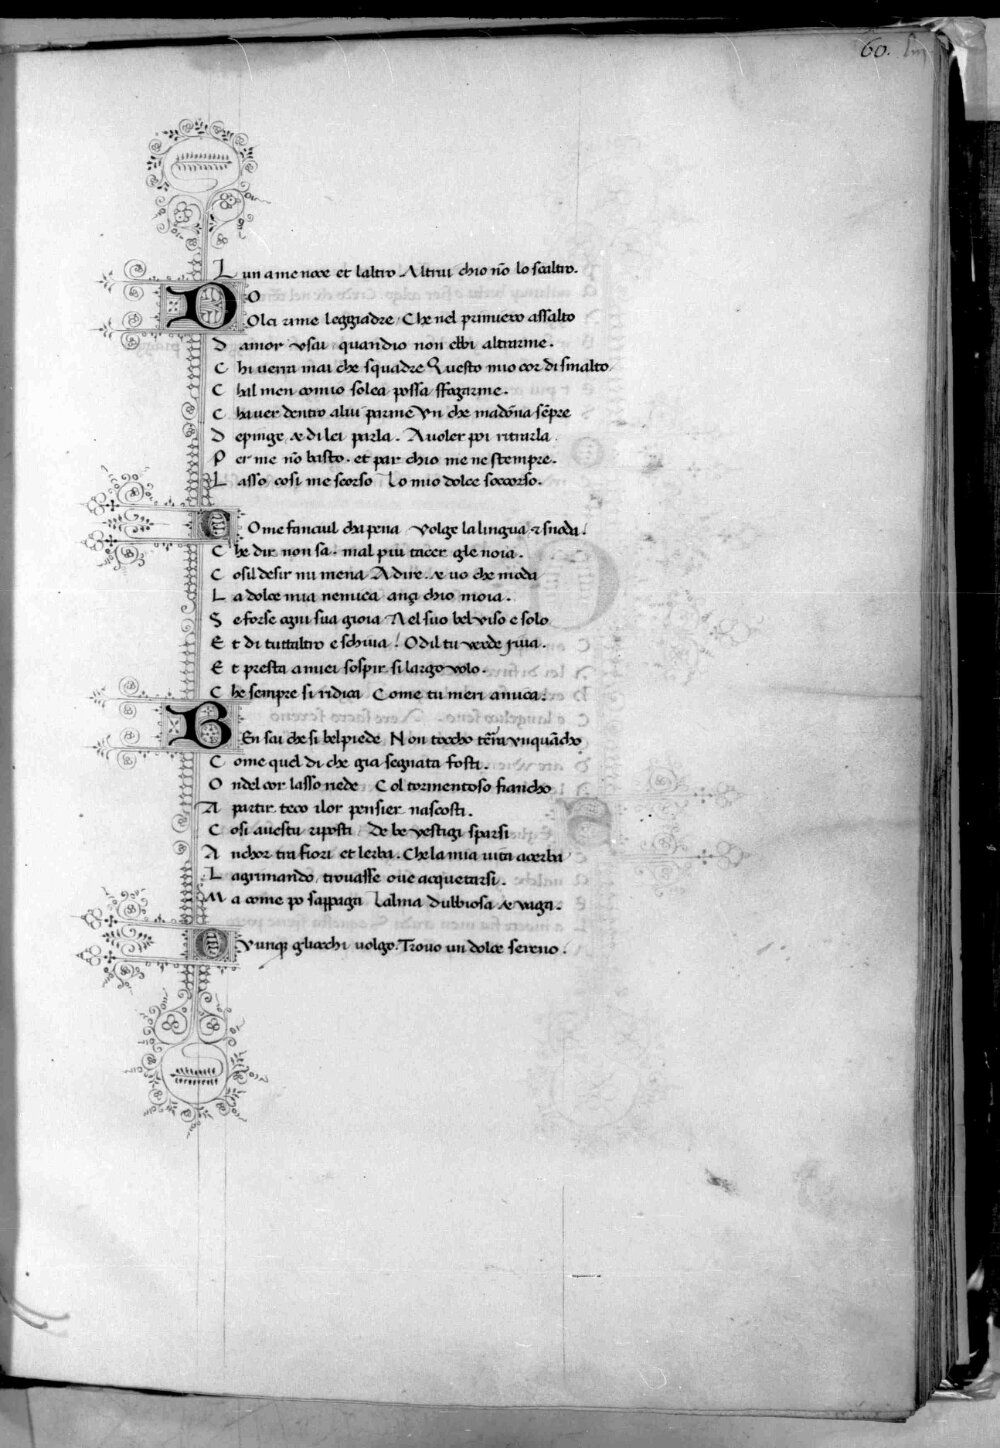 60.
L un a me noce et laltro Altrui chio nō lo scaltro.
DO
Olci rime leggiadre Che nel primiero assalto
D amor vsai quandio non ebbi altrarme.
C hi uerra mai che squadre Questo mio cor di smalto
C hal men comio solea possa sfogarme.
C hauer dentro alui parme Vn che madōna sēpre
D epinge & di lei parla. A uoler poi ritrarla
P er me nō basto. et par chio me ne stempre.
L asso cosi me scorso Lo mio dolce soccorso.
C Ome fanciul cha pena Volge la lingua & snoda.
C he dir non sa. mal piu tacer gle noia.
C osil desir mi mena A dire. & uo che moda
L a dolce mia nemica anzi chio moia.
S e forse ogni sua gioia Nel suo bel viso e solo
E t di tuttaltro e schiua / Odil tu verde riua.
E t presta a miei sospir si largo volo.
C he sempre si ridica Come tu meri amica.
B En sai che si bel piede Non toccho tēra vnquācho
C ome quel di che gia segnata fosti.
O ndel cor lasso riede Col tormentoso fiancho
A partir teco ilor pensier nascosti.
C osi auestu riposti De be vestigi sparsi
A nchor tra fiori et lerba. Che la mia uita acerba
L agrimando trouasse oue acquetarsi.
M a come po sappaga Lalma dubbiosa & vaga.
O Vunqꝫ gliocchi uolgo Trouo un dolce sereno.